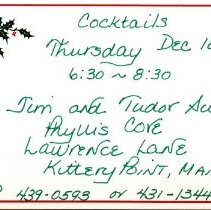 Cocktails
Thursday Dec 1
6:30 ~ 8:30
Jim and Tudor Au
Phyllis Cove
Lawrence Lane
Kittery Point, Mai
439-0593 or 431-1344